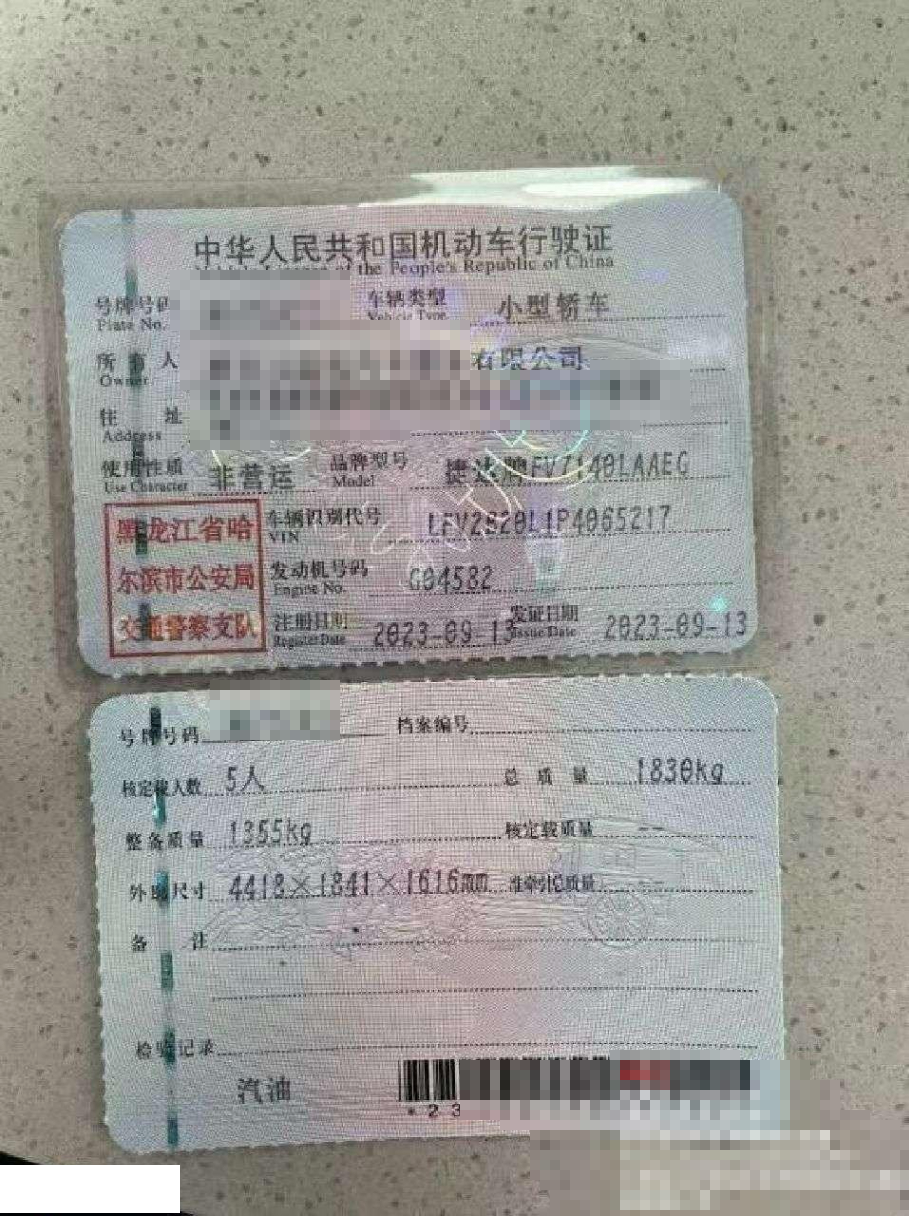 中华人民共和国机动车行驶证
of the People's Republic of China
号牌号码 车辆类型 小型轿车
Plate No. Vehicle Type
所有人 有限公司
Owner
住址
Address
使用性质 非营运 品牌型号 捷达牌FV7140LAAEG
Use Character Model
黑龙江省哈
尔滨市公安局
交通警察支队
车辆识别代号 LFV2B20L1P4065217
VIN
发动机号码 G04582
Engine No.
注册日期 2023-09-13 发证日期 2023-09-13
Register Date Issue Date
号牌号码 档案编号
核定载人数 5人 总质量 1830kg
整备质量 1355kg 核定载质量 --
外廓尺寸 4418×1841×1616mm 准牵引总质量 --
备注
检验记录
汽油
*23